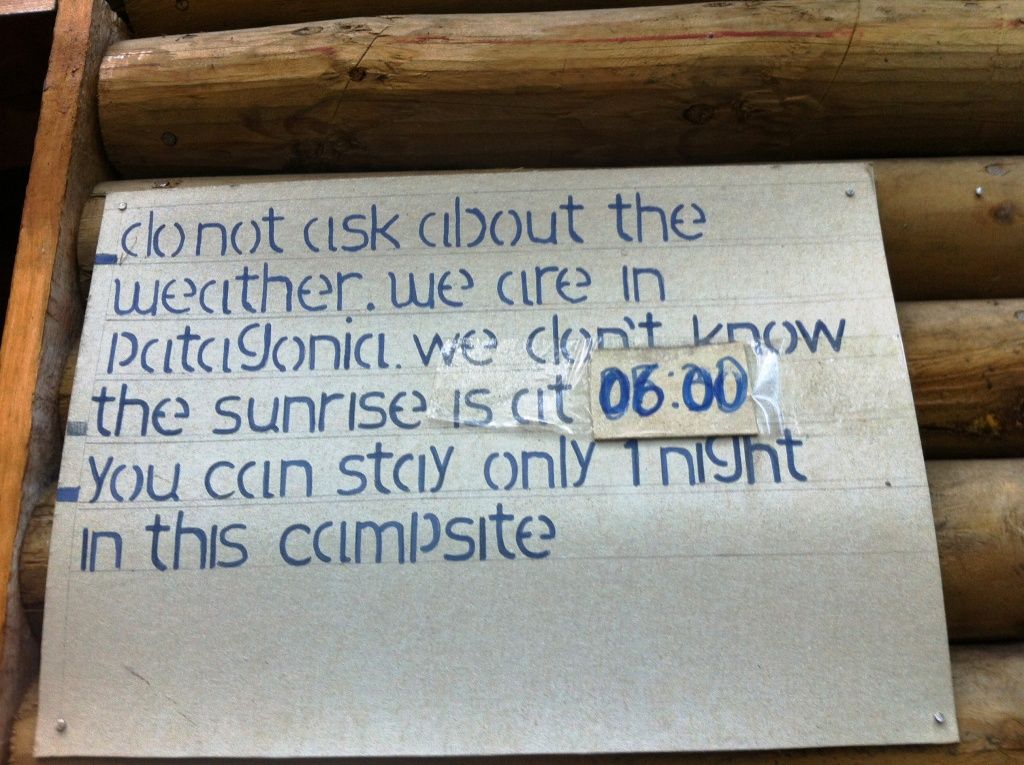 do not ask about the
weather. we are in
patagonia. we don't know
the sunrise is at 06:00
you can stay only 1 night
in this campsite